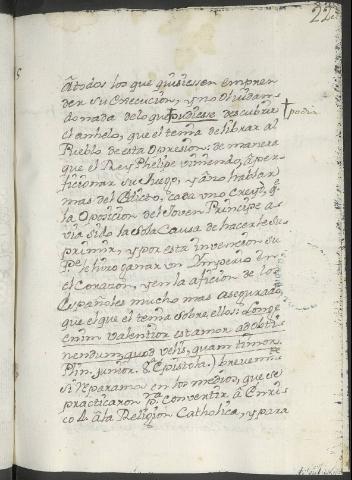 22
â todos los que quisiessen empren
der su execucion, y no olvidan
do nada de lo que pudiese descubrir † podia
el anhelo, que el tenia de librar al
Pueblo de esta Opresion: de manera
que el Rey Phelipe viniendo, â per
ficionar su Juego, y â no hablar
mas del Edicto, cada uno creyò, q.
la Oposicion del Joven Principe a
via sido la sola Causa de hacerle su
primir, y por esta invencion su
P.e se hizo ganar un Imperio in
el Corazon, y en la aficion de los
Españoles mucho mas asegurado,
que el que el tenia sobre ellos: Longe
enim valentior est amor ad obti
nendum quod velis, quam timor.
Plin. Junior. 8. Epistola.) brevem.te
Si reparamos en los medios, que se
practicaron p.a convertir â Enrri
co 4. â la Religion Catholica, y para